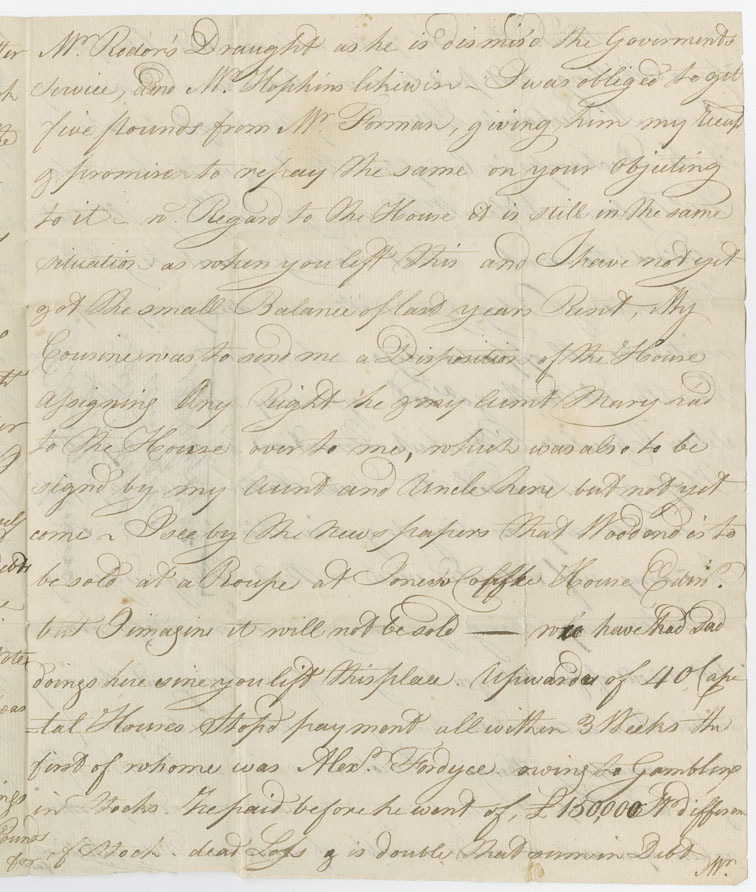 Mr. Rodor's Draught as he is dismisd the Goverments
Service, and Mr. Hopkins likewise - I was obliged to get
five Pounds from Mr. Forman, giving him my
& promise to repay the same on your Objecting
to it - n. Regard to the House it is still in the same
situation as when you left this and I have not yet
got the small Balance of last years Rent, My
Cousine was to send me a Disposition of the House
Assigning Any Right he & my Aunt Mary had
to the House over to me, which was also to be
signd by my Aunt and Uncle here but not yet
come - I see by the News papers that Woodend is to
be sold at a Roupe at Jones's Coffee House Edinr.
but I imagine it will not be sold — we have had sad
doings here sine you left this place. Upwards of 40 Capi
-tal Houses Stop'd payment all within 3 Weeks the
first of whome was Alexr. Fordyce owing to Gambling
in Stocks. he paid before he went of, £150,000 Str
of Stock - dead Loss & is double that sum in Debt
Mr.